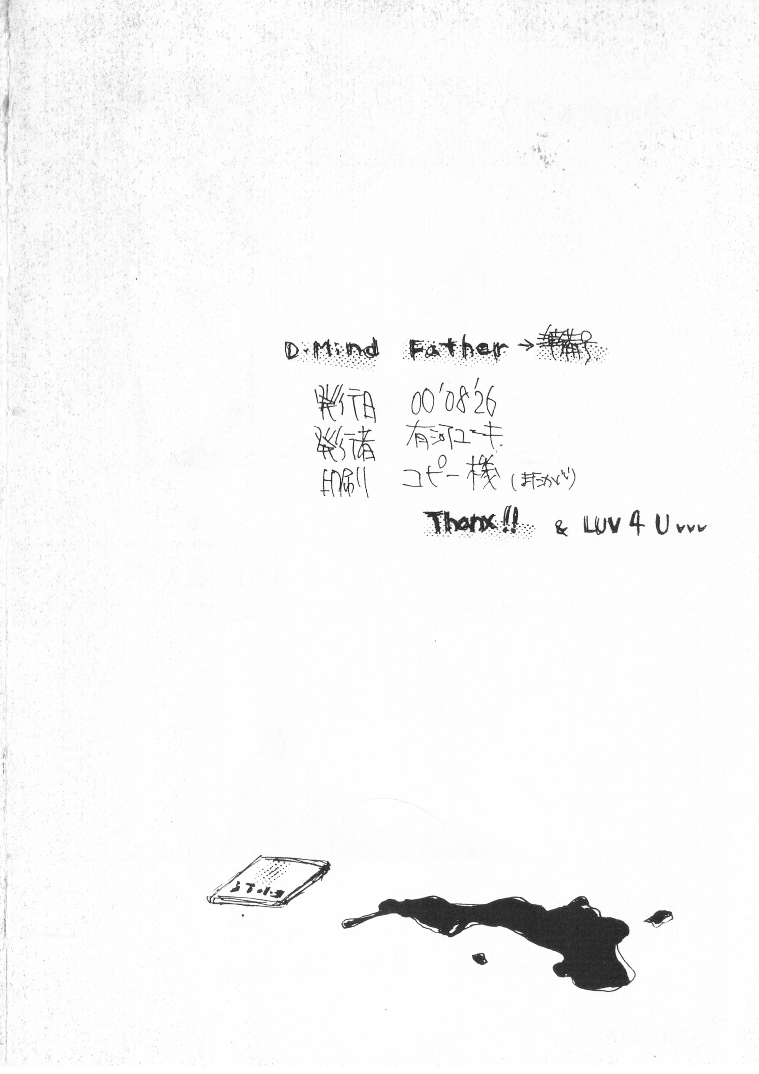 D・Mind Father → 準備号
発行日 00'08'26
発行者 有河ユーキ
印刷 コピー機 (またかい)
Thanx!! & LUV 4 U vvv